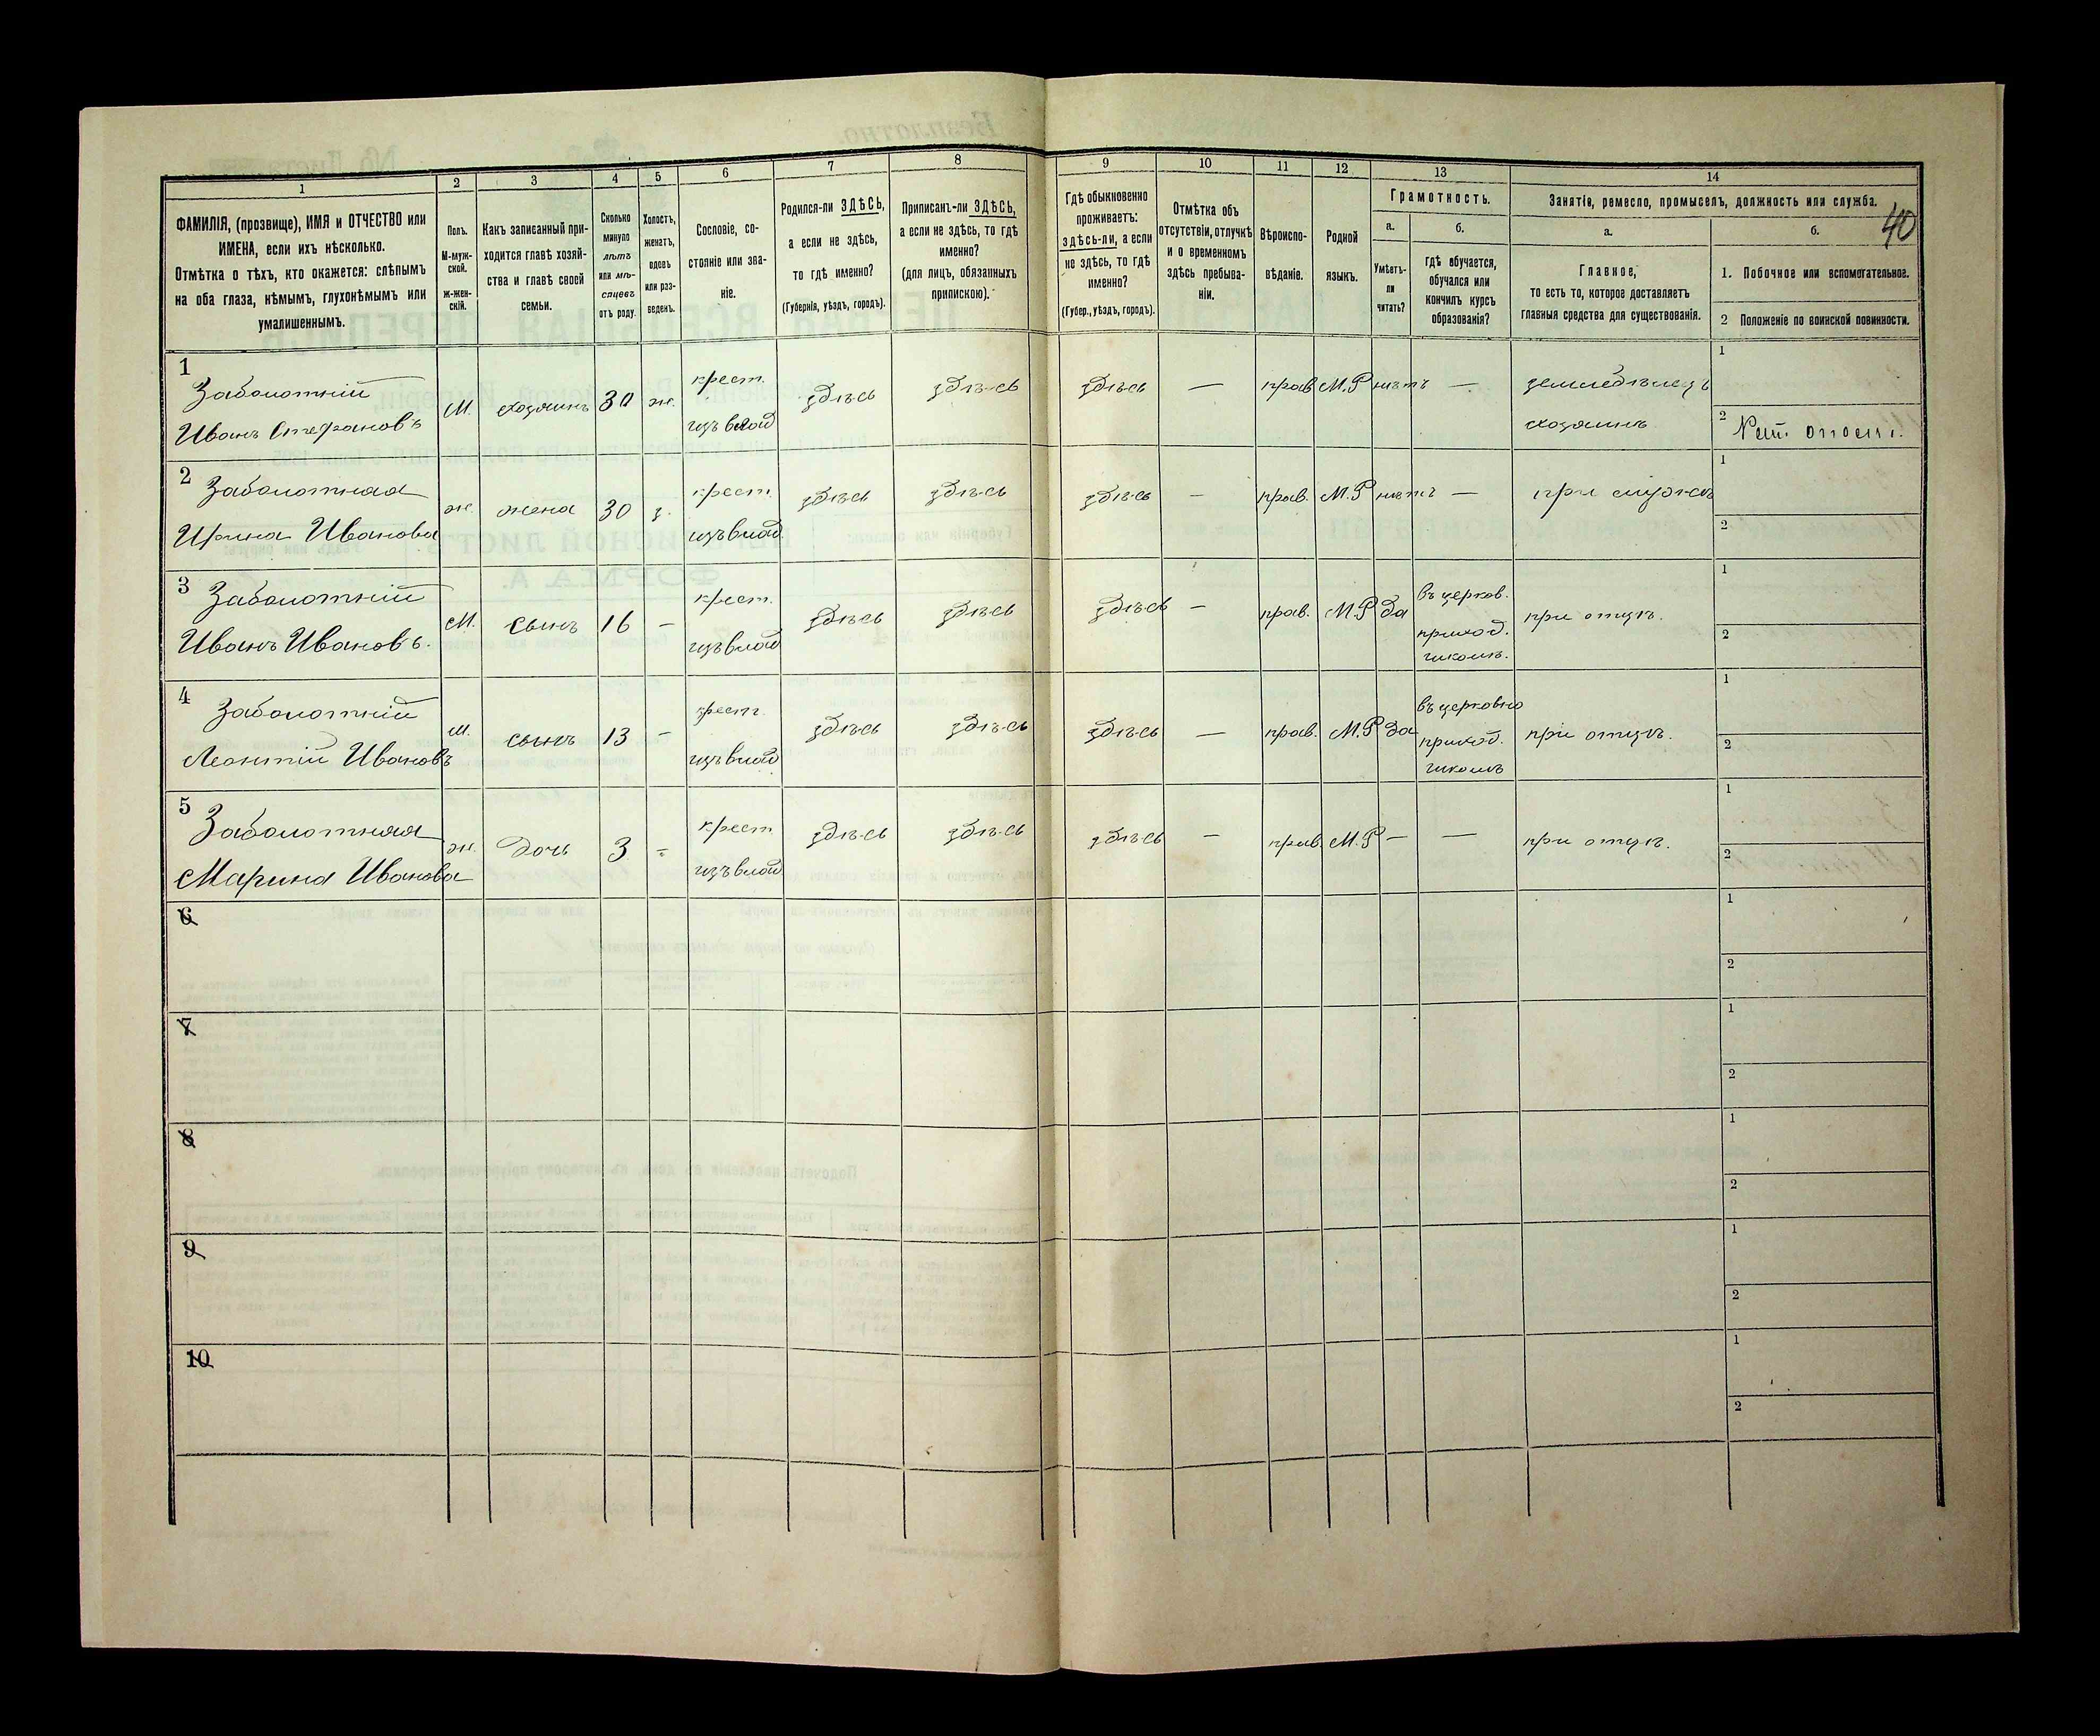 40
1 2 3 4 5 6 7 8 9 10 11 12 13 14
ФАМИЛІЯ, (прозвище), ИМЯ и ОТЧЕСТВО или
ИМЕНА, если ихъ нѣсколько.
Отмѣтка о тѣхъ, кто окажется: слѣпымъ
на оба глаза, нѣмымъ, глухонѣмымъ или
умалишеннымъ.
Полъ.
М-муж-
ской.
ж-жен-
скій.
Какъ записанный при-
ходится главѣ хозяй-
ства и главѣ своей
семьи.
Сколько
минуло
лѣтъ
или мѣ-
сяцевъ
отъ роду.
Холостъ,
женатъ,
вдовъ
или раз-
веденъ.
Сословіе, со-
стояніе или зва-
ніе.
Родился-ли ЗДѢСЬ,
а если не здѣсь,
то гдѣ именно?
(Губернія, уѣздъ, городъ).
Приписанъ-ли ЗДѢСЬ,
а если не здѣсь, то гдѣ
именно?
(для лицъ, обязанныхъ
припискою).
Гдѣ обыкновенно
проживаетъ:
здѣсь-ли, а если
не здѣсь, то гдѣ
именно?
(Губер., уѣздъ, городъ).
Отмѣтка объ
отсутствіи, отлучкѣ
и о временномъ
здѣсь пребыва-
ніи.
Вѣроиспо-
вѣданіе.
Родной
языкъ.
Грамотность.
а.
Умѣетъ-
ли
читать?
б.
гдѣ обучается,
обучался или
кончилъ курсъ
образованія?
Занятіе, ремесло, промыселъ, должность или служба.
а.
Главное,
то есть то, которое доставляетъ
главныя средства для существованія.
б.
1. Побочное или вспомогательное.
2 Положеніе по воинской повинности.
1
Заболотній
Иванъ Стефановъ
М. хозяинъ 30 ж.
крест.
изъ влад
здѣсь здѣсь здѣсь — прав М.Р нѣтъ —
земледѣлецъ
хозяинъ
1
2
2
Заболотная
Ирина Иванова
ж. жена 30 з.
крест.
изъ влад.
здѣсь здѣсь здѣсь — прав. М.Р нѣтъ — при мужѣ
1
2
3
Заболотній
Иванъ Ивановъ.
М. сынъ 16 —
крест.
изъ влад
здѣсь здѣсь здѣсь — прав. М.Р да
въ церков.
приход.
школѣ.
при отцѣ.
1
2
4
Заболотній
Леонтій Ивановъ
м. сынъ 13 —
крест.
изъ влад
здѣсь здѣсь здѣсь — прав. М.Р да
въ церковно
приход.
школѣ
при отцѣ.
1
2
5
Заболотная
Марина Иванова
ж. дочь 3 —
крест.
изъ влад
здѣсь здѣсь здѣсь — прав. М.Р — — при отцѣ.
1
2
6
1
2
7
1
2
8
1
2
9
1
2
10
1
2